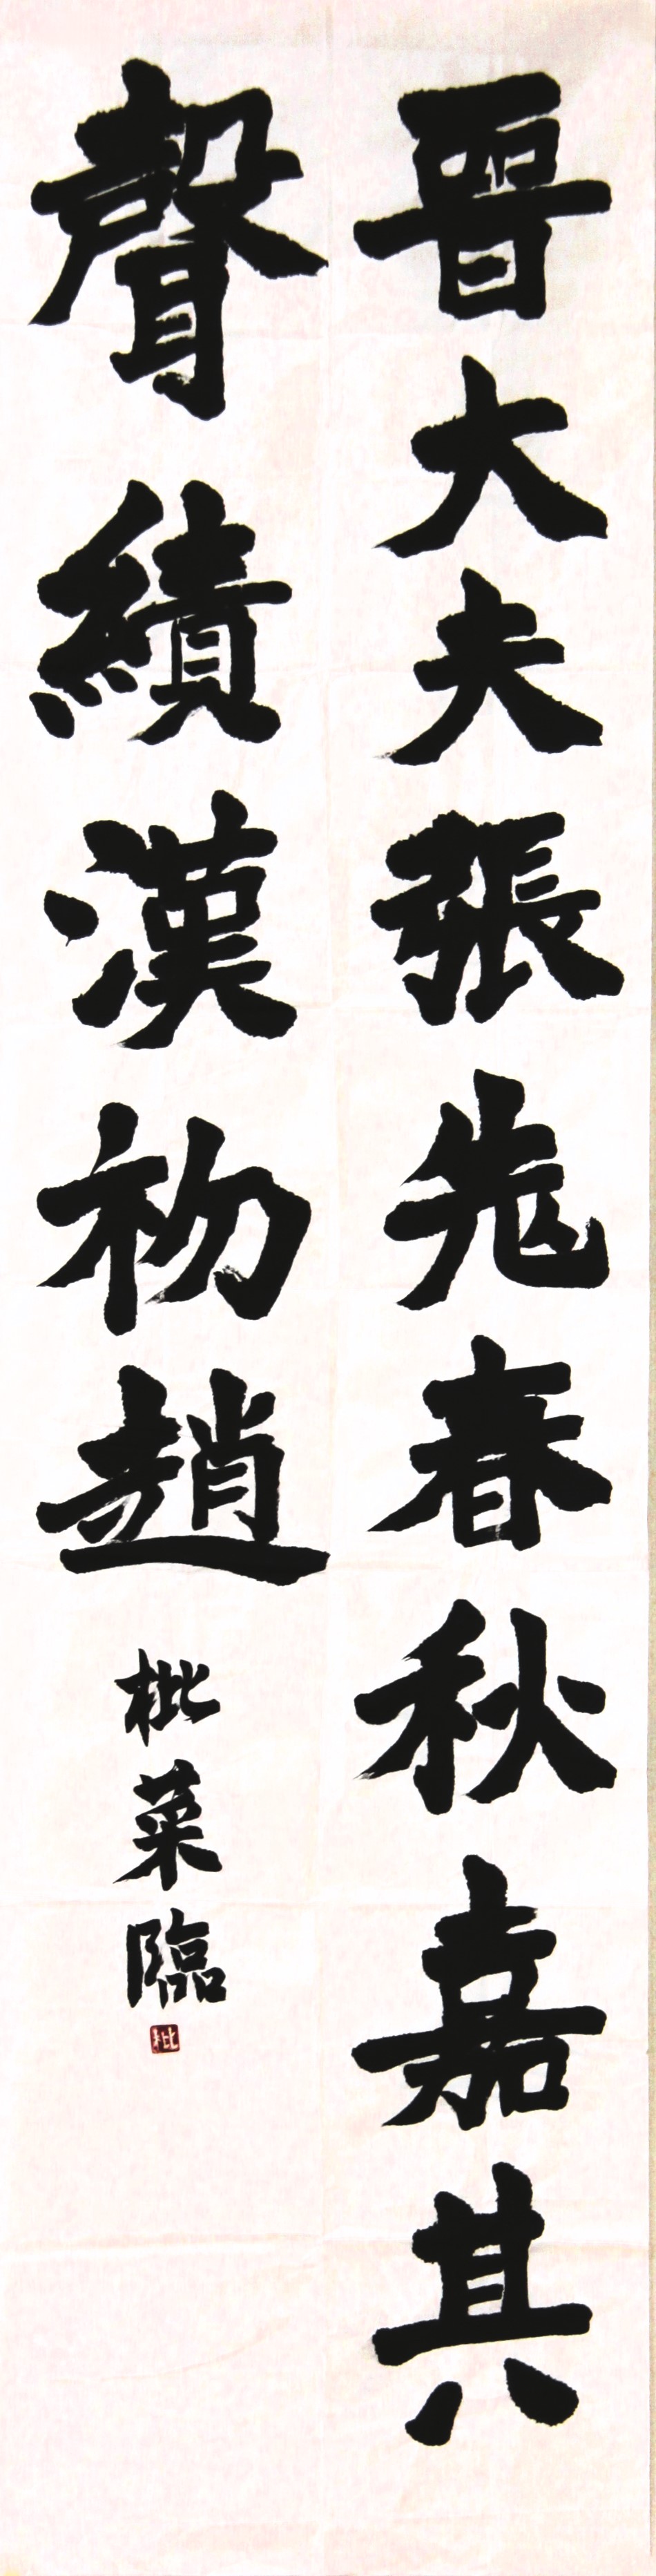 晉大夫張老春秋嘉其
聲績漢初趙
枇菜臨
枇